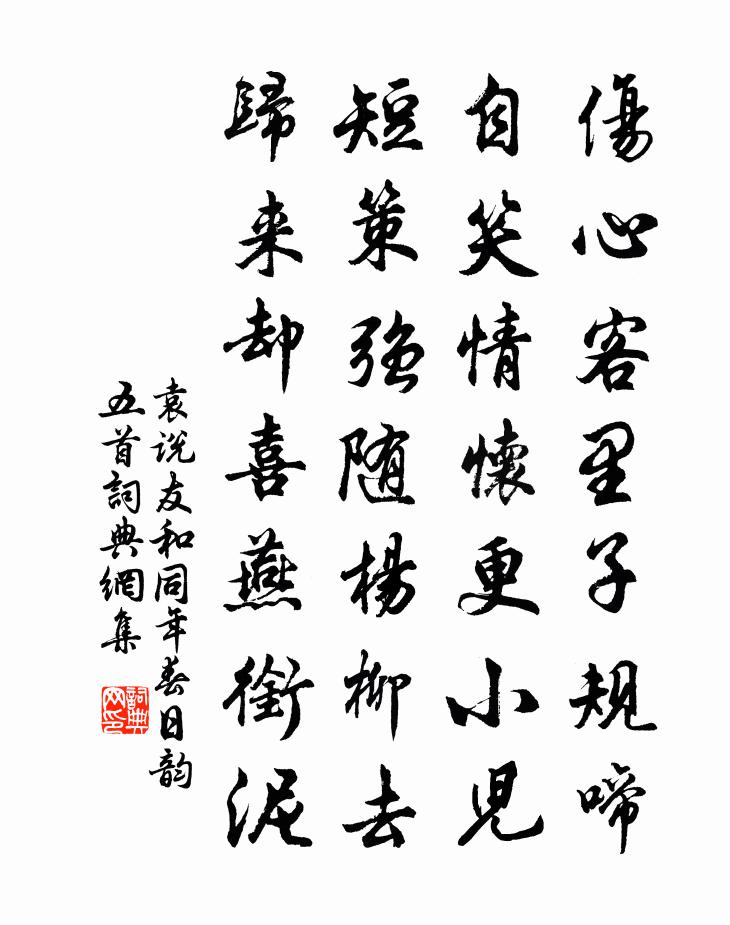 傷心客里子規啼
自笑情懷更小兒
短策強随楊柳去
歸来却喜燕銜泥
袁说友和同年春日韵
五首詞典網集
詞典
网印